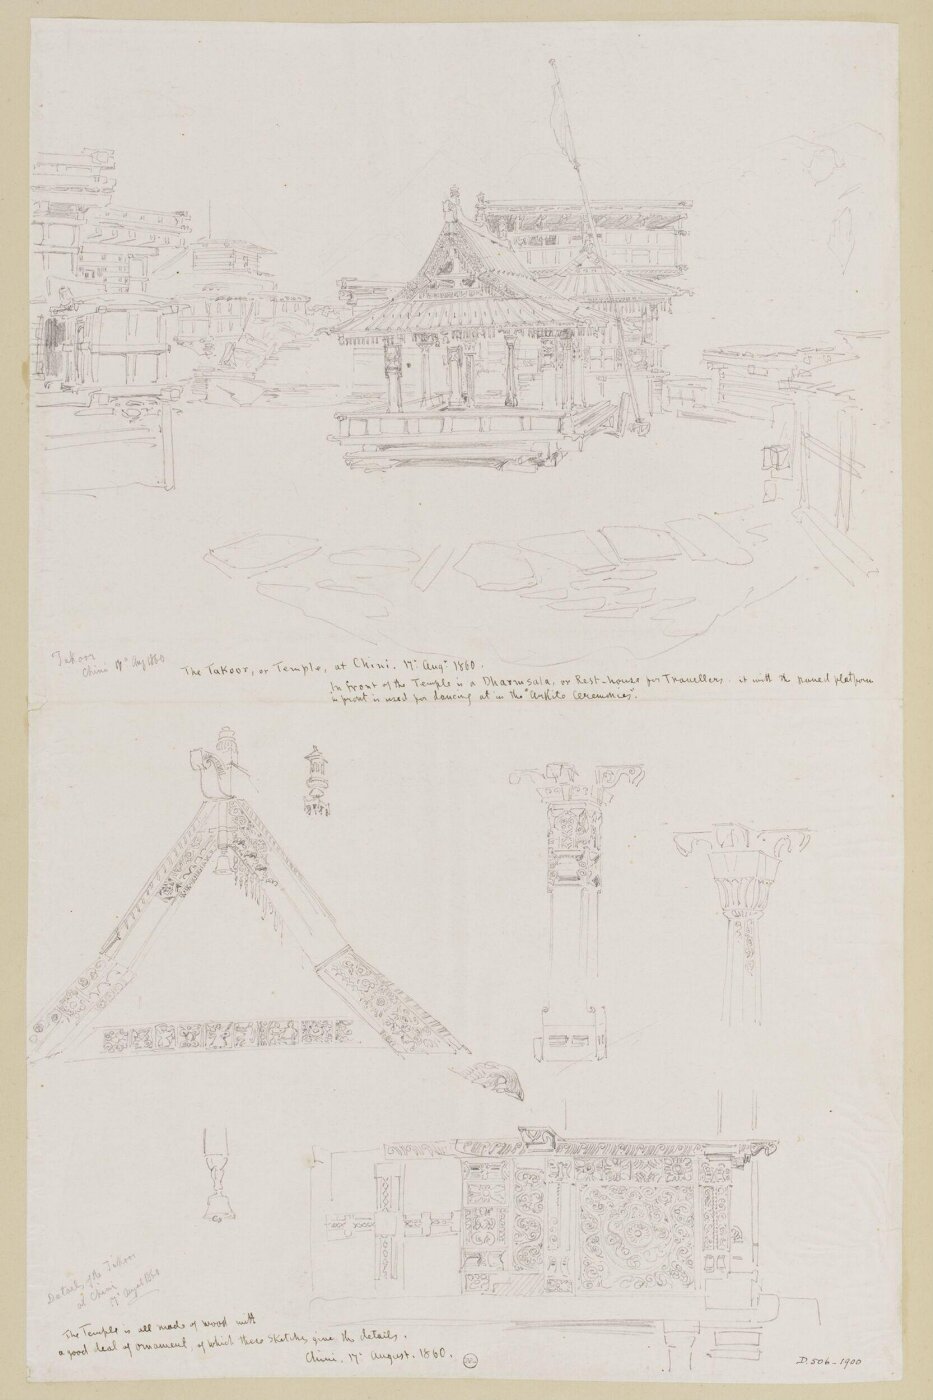 Takoor
Chini 17th Aug 1860
The Takoor, or Temple, at Chini. 17th Augt 1860.
In front of the Temple is a Dharmsala, or Rest-house for Travellers. it with the paved platform
in front is used for dancing at in the "Arkite Ceremonies".
Details of the Takoor
at Chini
17th August 1860
The Temple is all made of wood with
a good deal of ornament, of which these Sketches give the details.
Chini. 17th August. 1860.
D.506-1900